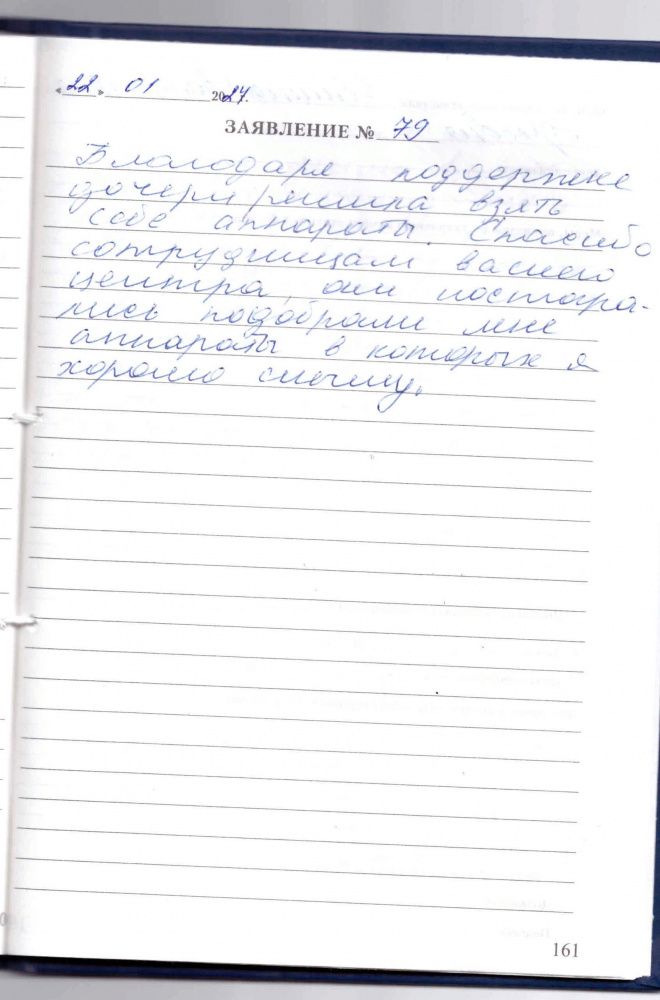 «22» 01 2024г.
ЗАЯВЛЕНИЕ № 79
Благодаря поддержке
дочери решила взять
себе аппараты. Спасибо
сотрудницам вашего
центра, они постара-
лись подобрали мне
аппараты в которых я
хорошо слышу.
161